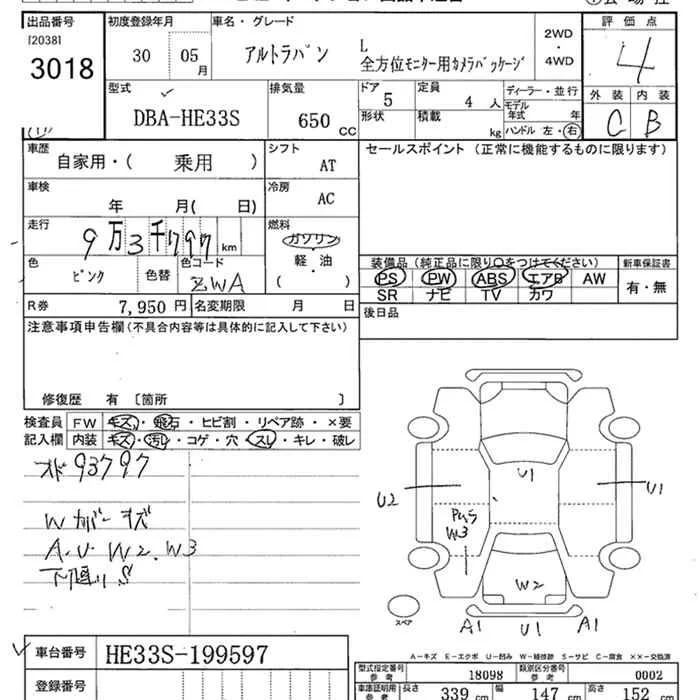 出品番号 初度登録年月 車名・グレード 評価点
[2038]
3018 30 05月 アルトラパン L 全方位モニター用カメラパッケージ 2WD・4WD 4
型式 排気量 ドア 5 定員 4人 ディーラー・並行 外装 内装
DBA-HE33S 650 CC 形状 積載 kg モデル年式 年 C B
ハンドル 左・右
車歴 シフト セールスポイント(正常に機能するものに限ります)
自家用・( 乗用 ) AT
車検 冷房
年 月( 日) AC
走行 燃料
9万3千797km ガソリン
軽・油
( )
色 色替 色コード 装備品(純正品に限り〇をつけてください) 新車保証書
ピンク ZWA PS PW ABS エアB AW 有・無
SR ナビ TV カワ
R券 7,950円 名変期限 月 日 後日品
注意事項申告欄(不具合内容等は具体的に記入して下さい)
修復歴 有 〔箇所 〕
検査員 FW キズ・飛石・ヒビ割・リペア跡・×要
記入欄 内装 キズ・汚レ・コゲ・穴・スレ・キレ・破レ
オド93797
Wカバーキズ
A.U.W2.W3
下廻りS
U1
U2 U1
W3
W2
A1 U1 A1
スペア
A-キズ E-エクボ U-凹み W-補修跡 S-サビ C-腐食 ××-交換済
車台番号 HE33S-199597
型式指定番号 参考 18098 類別区分番号 参考 0002
登録番号
車庫証明用 参考 長さ 339cm 幅 147cm 高さ 152cm